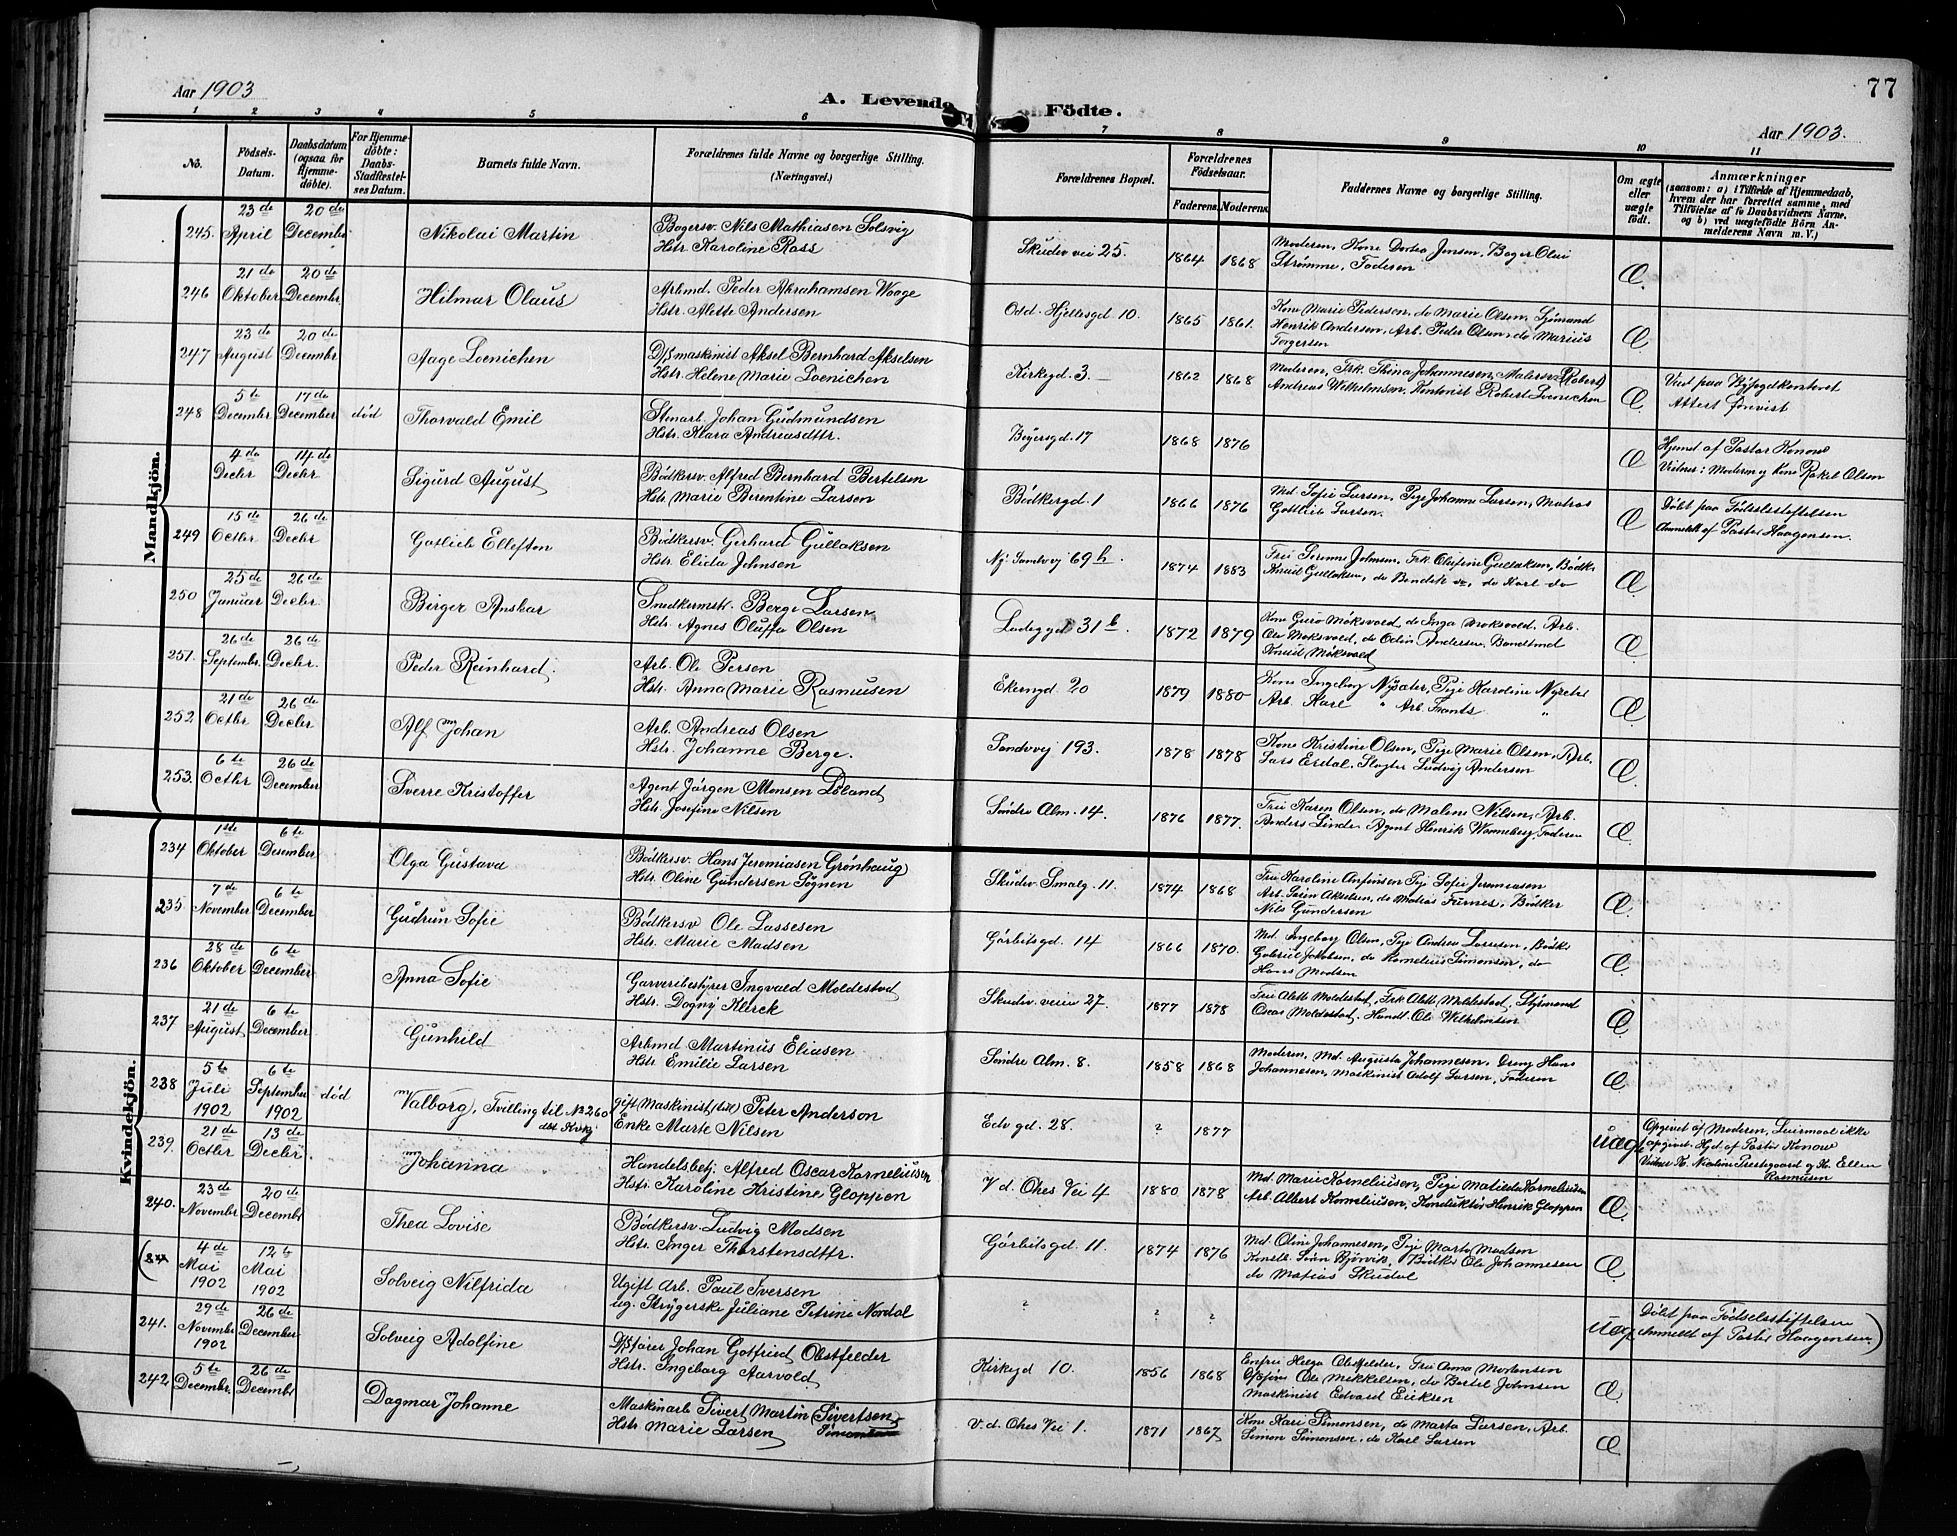 77
Aar 1903
A. Levende Födte.
Aar 1903.
1 2 3 4 5 6 7 8 9 10 11
No.
Födsels-Datum.
Daabsdatum (ogsaa for Hjemme-döbte).
For Hjemme-döbte: Daabs-Stadfæstel-ses Datum.
Barnets fulde Navn.
Forældrenes fulde Navne og borgerlige Stilling.
(Næringsvei.)
Forældrenes Bopæl.
Forældrenes Födselsaar.
Faderens. Moderens.
Faddernes Navne og borgerlige Stilling.
Om ægte eller uægte födt.
Anmærkninger
(saasom: a) i Tilfælde af Hjemmedaab,
hvem der har forrettet samme, med
Tilföielse af to Daabsvidners Navne.
og b) ved uægtefödte Börn An-
melderens Navn m. V.)
Mandkjön.
245. 23de April 20de December Nikolai Martin
Bogersv. Nils Mathiasen Solsvig
Hstr. Karoline Rass
Skudev vei 25. 1864 1868
Moderen, Kone Dortea Jensen, Bager Olai
Strømme, Faderen
Æ
246 21de Oktober 20de Decembr. Hilmar Olaus
Arbmd. Peder Abrahamsen Waage
Hstr. Alette Andersen
Odd. Hjeltesgd 10. 1865 1861.
Kone Marie Pederson, do Marie Olsen, Sjömand
Henrik Andersen, Arb. Peder Olsen, do Marius
Torgersen
Æ
247 23de August 20de Decembr. Aage Loenichen
D/s maskinist Aksel Bernhard Akselsen
Hstr. Helene Marie Loenichen
Kirkegd. 3. 1862 1868
Moderen, Frk. Thina Johannesen, Malersv. (Robert)
Andreas Wilhelmson, Kontorist Robert Loenichen
Æ
Viet paa Byfogdkontoret
248 5te Decembr. 17de December död Thorvald Emil
Stenarb. Johan Gudmundsen
Hstr. Klara Andreasdttr.
Beyersgd. 17 1868 1876
Æ
Hjemd af Pastor Konow
Vidner: Moderen og Kone Rakel Olsen
4de Decbr. 14de Decbr. Sigurd August
Bödkersv. Alfred Bernhard Bertelsen
Hstr. Marie Berentine Larsen
Bödkergd. 1 1866 1876
Md. Sofie Larsen, Pige Johanne Larsen, Matros
Gottlieb Larsen.
Æ
Döbt paa Födselsstiftelsen
Anmeldt af Pastor Haagensen.
249 15de Octbr. 26de Decbr. Gotlieb Elleften
Bödkersv. Gerhard Gullaksen
Hstr. Elida Johnsen
Ny. Sandvig 69 h 1874 1883
Frü Serinne Johnsen, Frk. Olufine Gullaksen, Bödk.
Knud Gullaksen, do Bendik do, do Karl do
Æ
250 25de Januar 26de Decbr. Birger Anskar
Snedkermstr. Berge Larsen
Hstr. Agnes Oluffa Olsen
Ladegd 31 b. 1872 1879
Kone Guro Möksvold, do Inga Moksvold, Arb.
Ole Moksvold, do Odin Andersen, Bondemd
Knud Möksvold
Æ
251. 26de Septembr. 26de Decbr. Peder Reinhard.
Arb. Ole Persen
Hstr. Anna Marie Rasmusen
Ekerengd 20 1879 1880
Kone Ingeborg Nysæter, Pige Karoline Nysæter
Arb. Karl " Arb. Frants "
Æ
252. 21de Octbr. 26de Decbr. Alf Johan
Arb. Andreas Olsen
Hstr. Johanne Berge.
Sandvig 193. 1878 1878
Kone Kristine Olsen, Pige Marie Olsen, Arb.
Lars Erdal, Slagter Ludvig Andersen
Æ
253. 6te Octbr. 26de December Sverre Kristoffer
Agent Jørgen Monsen Löland
Hstr. Josefine Nilsen
Söndre Alm. 14. 1876 1877.
Frü Karen Olsen, do Malene Nilsen, Arb.
Anders Linde, Agent Henrik Wanneberg, Faderen
Æ
Kvindekjön.
234 1ste Oktober 6te Desember Olga Gustava
Bödkersv. Hans Jeremiasen Grönhaug
Hstr. Oline Gundersen Sognen
Skudev. Smalg. 11. 1874 1868
Frü Karoline Anfinsen Pige Sofie Jeremiasen
Arb. Sören Akselsen, do Matias Furnes, Bödker
Nils Gundersen
Æ
235. 7de November 6te December Gudrun Sofie
Bödkersv Ole Lassesen
Hstr. Marie Madsen
Görbitsgd. 14 1866 1870.
Md. Ingeborg Olsen, Pige Andrea Larsen, Bödk.
Gabriel Jakobsen, do Kornelius Simonsen, do
Hans Madsen
Æ
236 28de Oktober 6te December Anna Sofie
Garveribestyrer Ingvald Moldestad
Hstr. Dogny Klerck
Skudev. veien 27. 1877 1878
Frü Alette Moldestad, Frk. Alette Moldestad, Styrmand
Oscar Moldestad, Handl. Ole Wilhelmsen
Æ
237 21de August 6te December Gunhild
Arbmd Martinus Eliasen
Hstr. Emilie Larsen
Söndre Alm. 8. 1858 1868
Moderen, Md. Augusta Johannesen, Dreng Hans
Johannesen, Maskinist Adolf Larsen, Faderen
Æ
238 5te Juli 1902 6te September 1902 död Valborg, Tvilling til No 260
gift Maskinist Peter Anderson
Enke Marte Nilsen
Edv gd. 28. ? 1877
uægt
Opgivet af Moderen, Leiermaal ikke
opgivet. Hjd. af Pastor Konow
Vidner K. Nicoline Prestegaard og K. Ellen
Rasmusen
239. 21de Octbr 13de Decbr. Johanna
Handelsbetj. Alfred Oscar Korneliussen
Hstr. Karoline Kristine Gloppen
V. d. Ohes Vei 4 1880 1878
Md. Marie Korneliusen, Pige Matilde Korneliusen
Arb. Albert Korneliusen, Konduktör Henrik Gloppen
Æ
240. 23de November 20de December Thea Lovise
Bödkersv. Ludvig Madsen
Hstr. Inger Thorstensdttr.
Görbitsgd. 11. 1874 1876
Md. Oline Johannesen, Pige Marta Madsen
Bödker Ole Johannesen
do Matias Skudal
Æ
4de Mai 1902 12te Mai 1902 Solveig Nilfrida
Ugift Arb. Paul Iversen
ug. Strygerske Juliane Petrine Nordal
? ? ?
uægt
Döbt paa Födselsstiftelsen
Anmeldt af Pastor Haagensen)
241. 29de November 1902 26de December Solveig Adolfine
D/sförer Johan Gotfried Obstfelder
Hstr. Ingeborg Aarvold
Kirkegd 10. 1856 1868
Enfrü Helga Obstfelder, Frü Anna Mortensen
Ole Mikkelsen, do Bertel Johnsen
Maskinist Edvard Eriksen
Æ
242. 5te Decembr. 26de Decembr Dagmar Johanne
Maskinarb Sivert Martin (Sivertsen)
Hstr. Marie Larsen Simonsen
V. d. Ohes Vei 1. 1871 1867
Kone Kari Simonsen, do Marta Larsen, Arb.
Simon Simonsen, do Karl Larsen
Æ